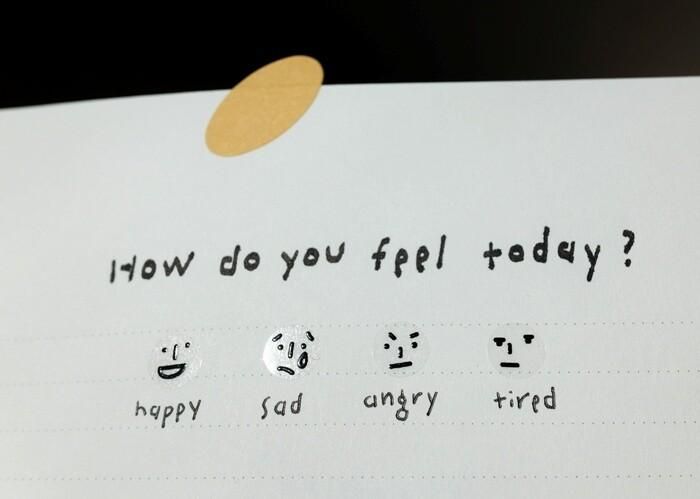 How do you feel today?
happy sad angry tired